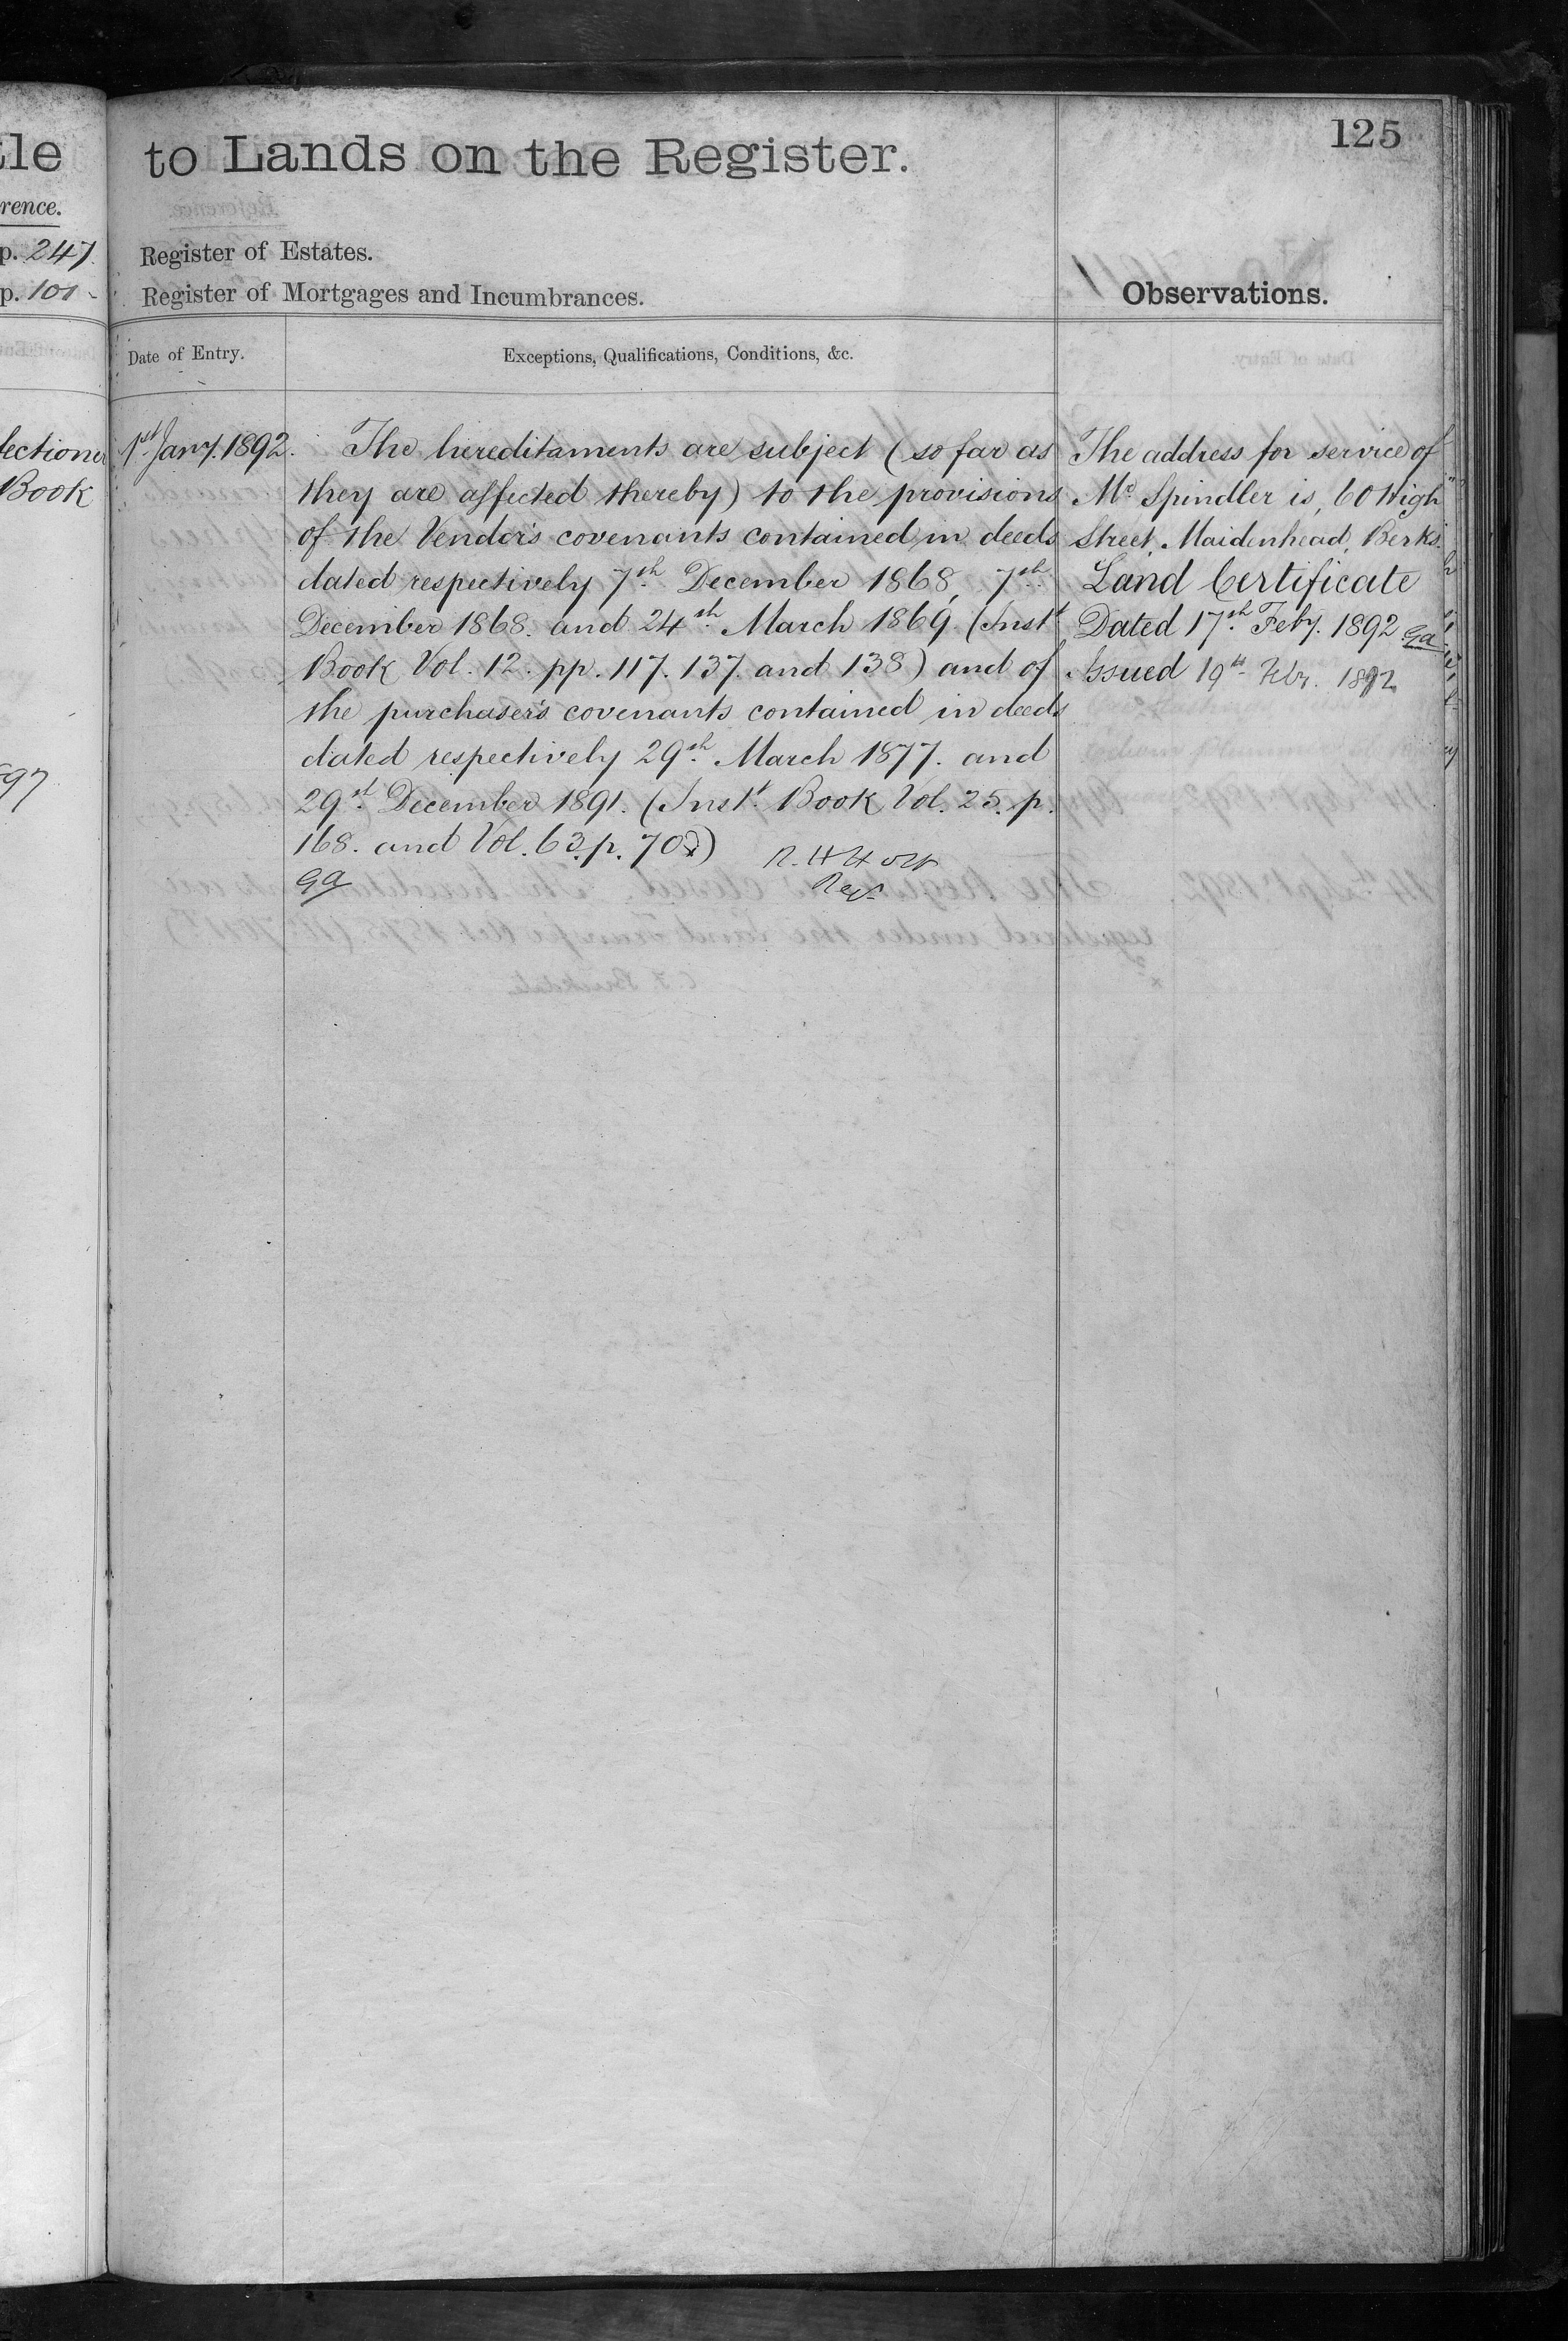 tle
rence.
p. 247
p. 101
lectione
Book
97
to Lands on the Register.
125
Register of Estates.
Register of Mortgages and Incumbrances.
Observations.
Date of Entry.
Exceptions, Qualifications, Conditions, &c.
1st Jany. 1892.
The hereditaments are subject (so far as
they are affected thereby) to the provisions
of the Vendor's covenants contained in deeds
dated respectively 7th December 1868, 7th
December 1868. and 24th March 1869. (Inst
Book Vol. 12. pp. 117. 137. and 138) and of
the purchaser's covenants contained in deeds
dated respectively 29th March 1877. and
29st December 1891. (Inst. Book Vol. 25. p.
168. and Vol. 63. p. 70)
ga
R. H Holt
Regr
The address for service of
Mr Spindler is, 60 High
Street, Maidenhead, Berks.
Land Certificate
Dated 17th Feby. 1892 ga
Issued 19th Feby. 1892